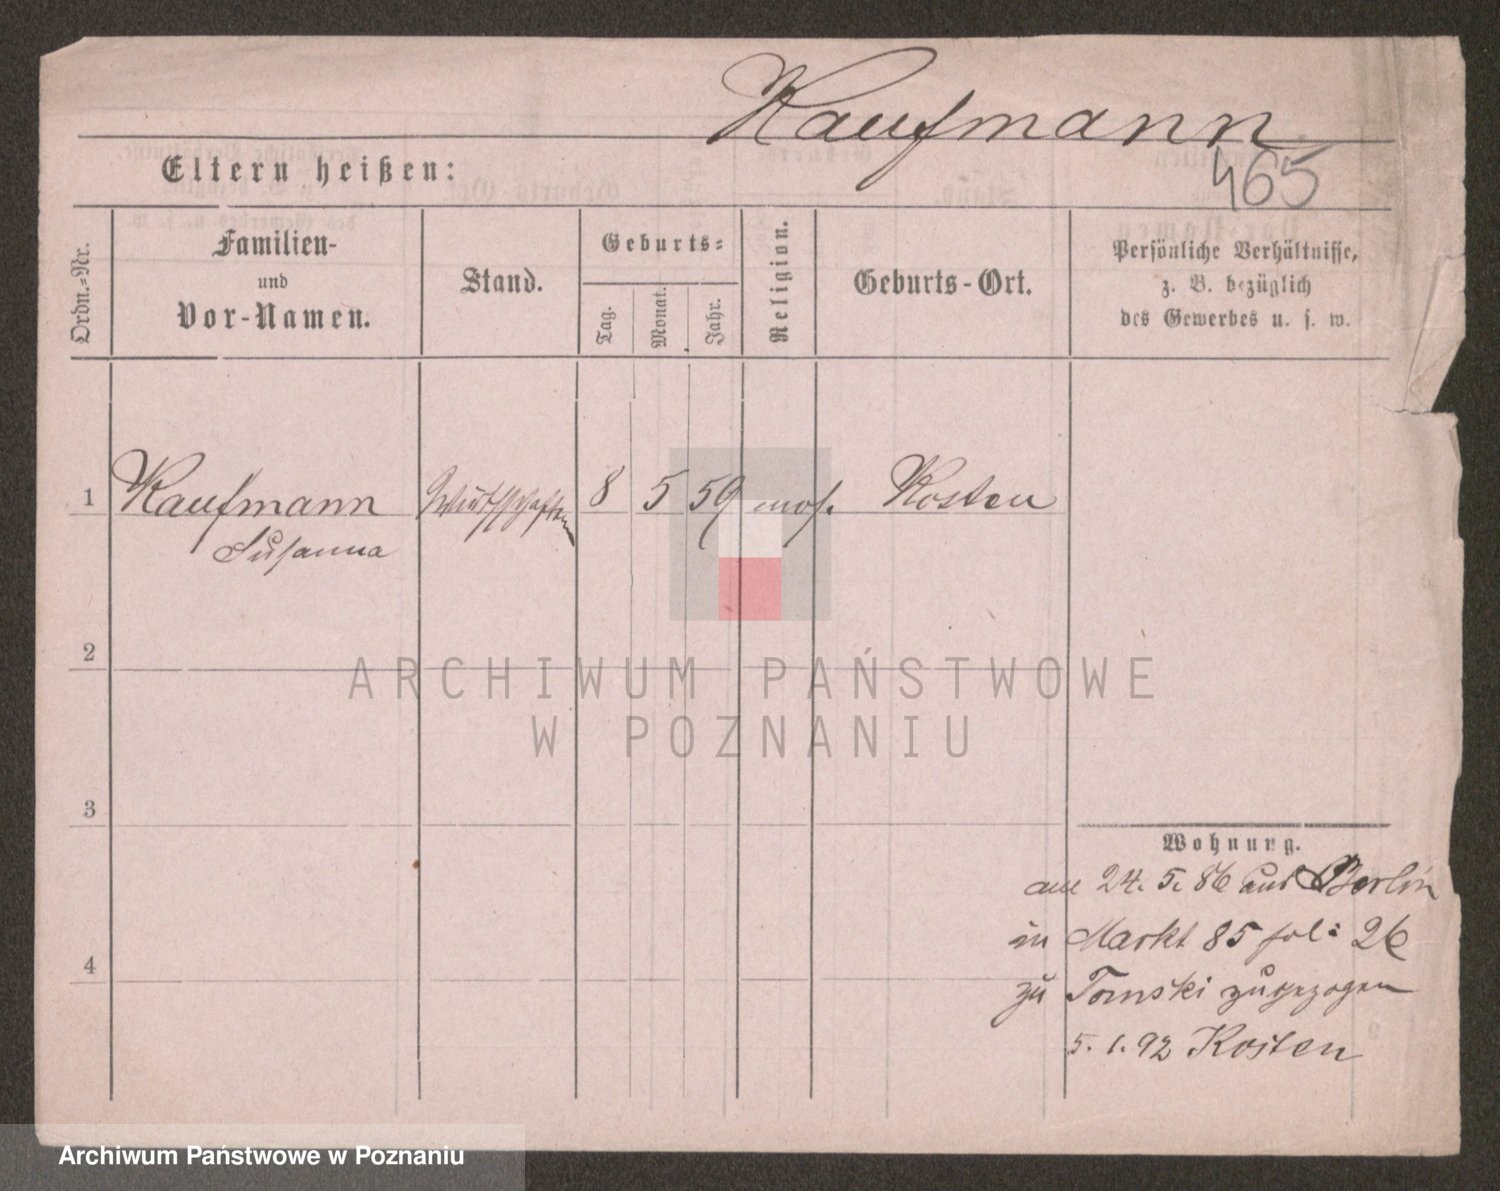 Kaufmann
465
Eltern heißen:
Ordn.-Nr.
Familien-
und
Vor-Namen.
Stand.
Geburts-
Tag.
Monat.
Jahr.
Religion.
Geburts-Ort.
Persönliche Verhältnisse,
z. B. bezüglich
des Gewerbes u. s. w.
1 Kaufmann Wirtschafterin 8 5 59 mos. Kosten
Susanna
2
3
4
Wohnung.
am 24. 5. 86 aus Berlin
in Markt 85 fol: 26
zu Tomski zugezogen
5. 1. 92 Kosten
ARCHIWUM PAŃSTWOWE
W POZNANIU
Archiwum Państwowe w Poznaniu